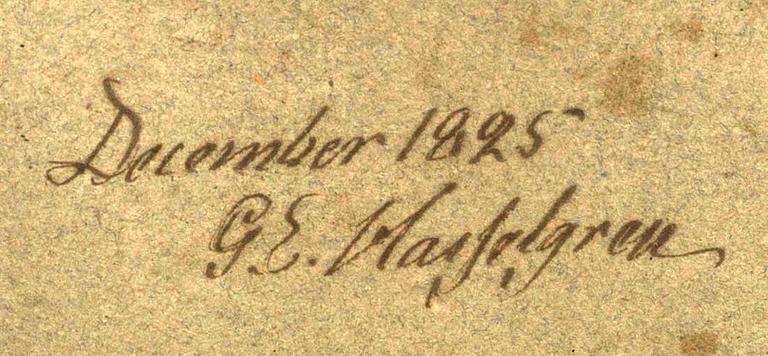 December 1825
G.E. Hasselgren